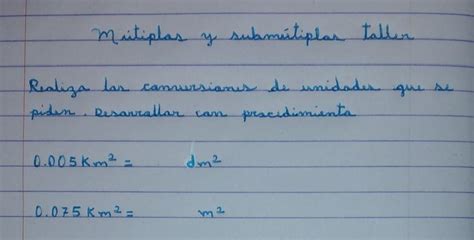 Mútiplos y submútiplos taller
Realiza las conversiones de unidades que se
piden. Desarrollar con procedimiento
0.005 Km² = dm²
0.075 Km² = m²